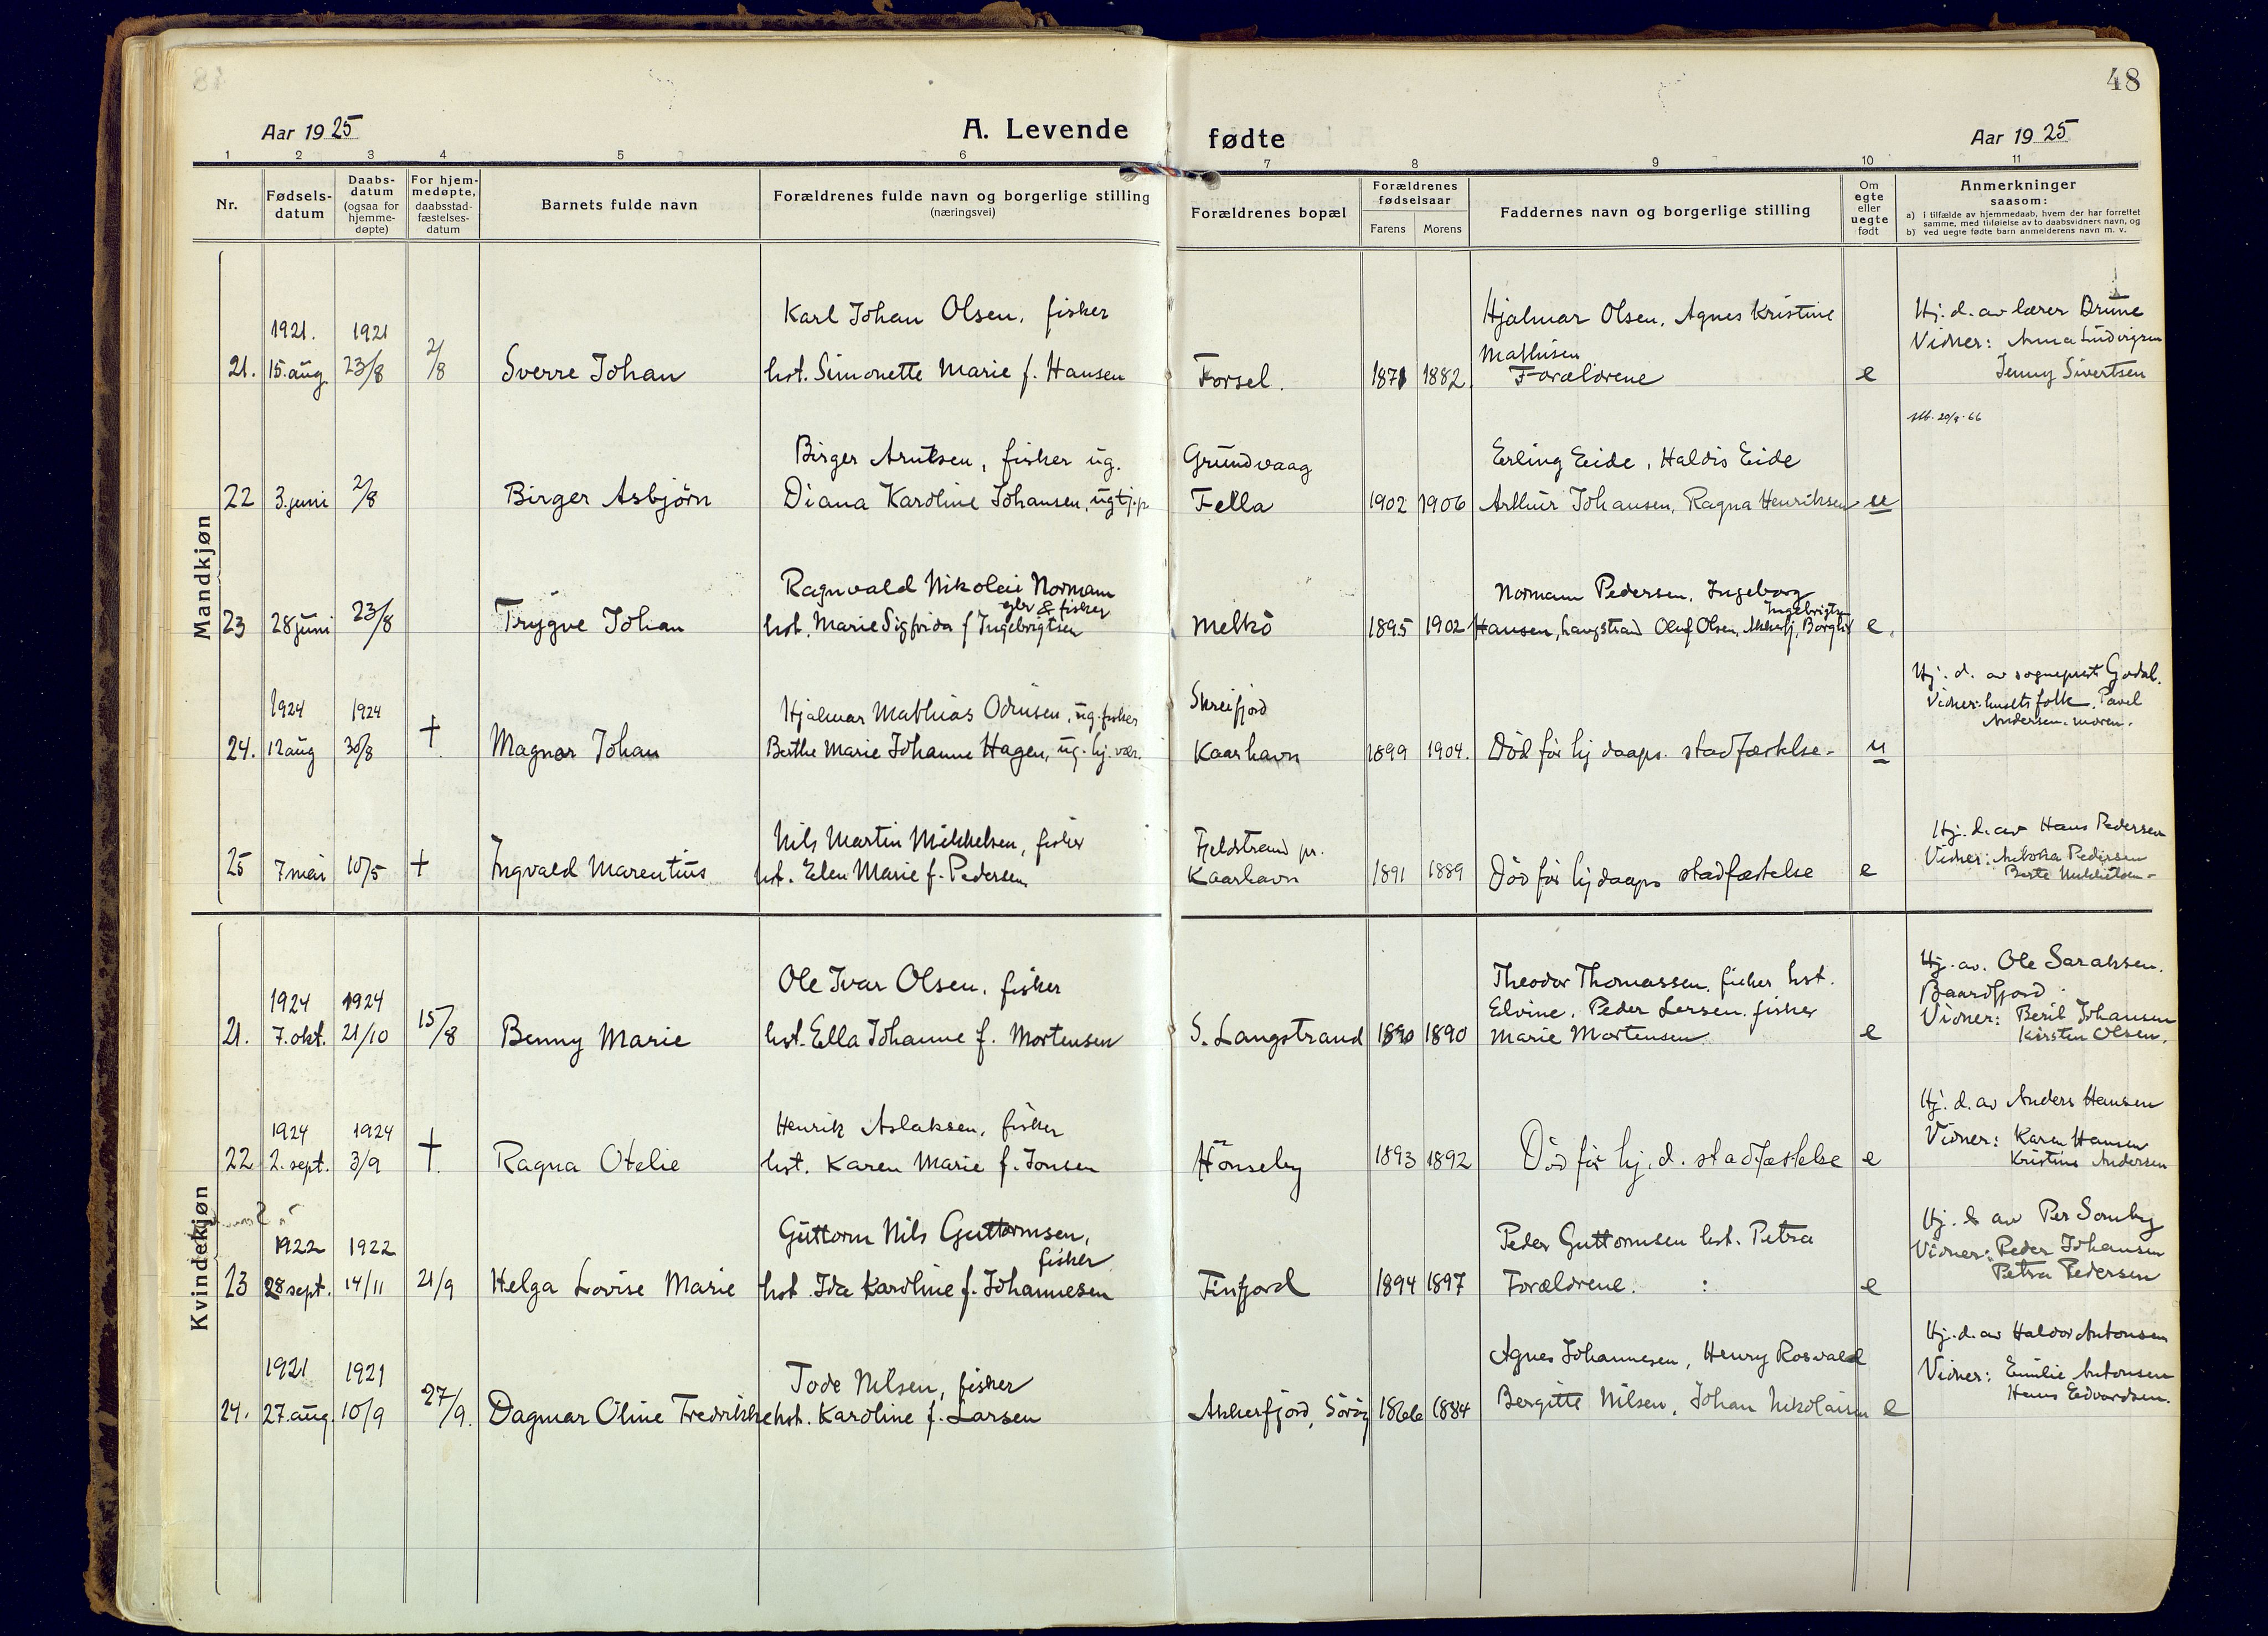 48
Aar 1925
A. Levende fødte
Aar 1925
1 2 3 4 5 6 7 8 9 10 11
Nr.
Fødsels-
datum
Daabs-
datum
(ogsaa for
hjemme-
døpte)
For hjem-
medøpte,
daabsstad-
fæstelses-
datum
Barnets fulde navn
Forældrenes fulde navn og borgerlige stilling
(næringsvei)
Forældrenes bopæl
Forældrenes
fødselsaar
Farens Morens
Faddernes navn og borgerlige stilling
Om
egte
eller
uegte
født
Anmerkninger
saasom:
a) i tilfælde av hjemmedaab, hvem der har forrettet
samme, med tilføielse av to daabsvidners navn, og
b) ved uegte fødte barn anmelderens navn m. v.
Mandkjøn
Karl Johan Olsen, fisker
Hjalmar Olsen, Agnes Kristine
Hj. d. av lærer Brune
1921. 1921
Mathisen
Vidner: Anna Ludvigsen
21. 15. aug 23/8 2/8 Sverre Johan
hst. Simonette Marie f. Hansen
Forsel. 1871 1882
Forældrene
e
Jenny Sivertsen
Birger Arntsen, fisker ug.
Grundvaag
Erling Eide, Haldis Eide
22 3. juni 2/8 Birger Asbjørn
Diana Karoline Johansen, ug tj.p
Fella 1902 1906
Arthur Johansen, Ragna Henriksen
u
Ragnvald Nikolai Normann
gbr & fisker
Normann Pedersen, Ingeborg
Ingebrigtsen
23 28 juni 23/8 Trygve Johan
hst. Marie Sigfrida f Ingebrigtsen
Melkö 1895 1902
Hansen, Langstrand Oluf Olsen, Akkerfj,
e.
Hj. d. av sogneprest Gjødal.
1924 1924
Hjalmar Mathias Odinsen, ug. fisker
Skreifjord
Vidner: Pavel
Andersen. moren.
24. 12 aug 30/8 † Magnar Johan
Berthe Marie Johanne Hagen, ug. hj. vær.
Kaarhavn 1899 1904.
Död för hj daaps. stadfæstelse.
u
Nils Martin Mikkelsen, fisker
Fjeldstrand pr.
Hj. d. av Hans Pedersen
Vidner: Pedersen
25 7 mai 10/5 † Ingvald Marentius
hst. Elen Marie f. Pedersen
Kaarhavn 1891 1889
Död för hj daaps stadfæstelse
e
Berte Mikkelsen
Kvindekjøn
Ole Ivar Olsen, fisker
Theodor Thomassen, fisker hst.
Hj. av. Ole Saraksen.
1924 1924
Elvine, Peder Larsen. fisker
Baardfjord
Vidner: Berit Johansen
21. 7. okt. 21/10 15/8 Benny Marie
hst. Ella Johanne f. Mortensen
S. Langstrand 1890 1890
Marie Mortensen
e
Kirsten Olsen.
Henrik Aslaksen, fisker
Hj. d. av Anders Hansen
1924 1924
Vidner: Karen Hansen
22 2. sept. 3/9 † Ragna Otelie
hst. Karen Marie f. Jonsen
Hönseby 1893 1892
Död för hj. d. stadfæstelse
e
Kristine Andersen
Guttorm Nils Guttormsen,
fisker
Peder Guttormsen hst. Petra
Hj. d av Per Somby
1922 1922
Vidner: Peder Johansen
23 28 sept. 14/11 21/9 Helga Lovise Marie
hst. Ida Karoline f. Johannesen
Finfjord 1894 1897
Forældrene.
e
Petra Pedersen
Agnes Johannesen, Henry Rosvald
Hj. d. av Haldor Antonsen
1921 1921
Tode Nilsen, fisker
Vidner: Emilie Antonsen
24. 27. aug. 10/9 27/9. Dagmar Oline Fredrikke
hst. Karoline f. Larsen
Akkerfjord, Söröy 1866 1884
Bergitte Nilsen, Johan Nikolaisen
e
Hans Edvardsen.